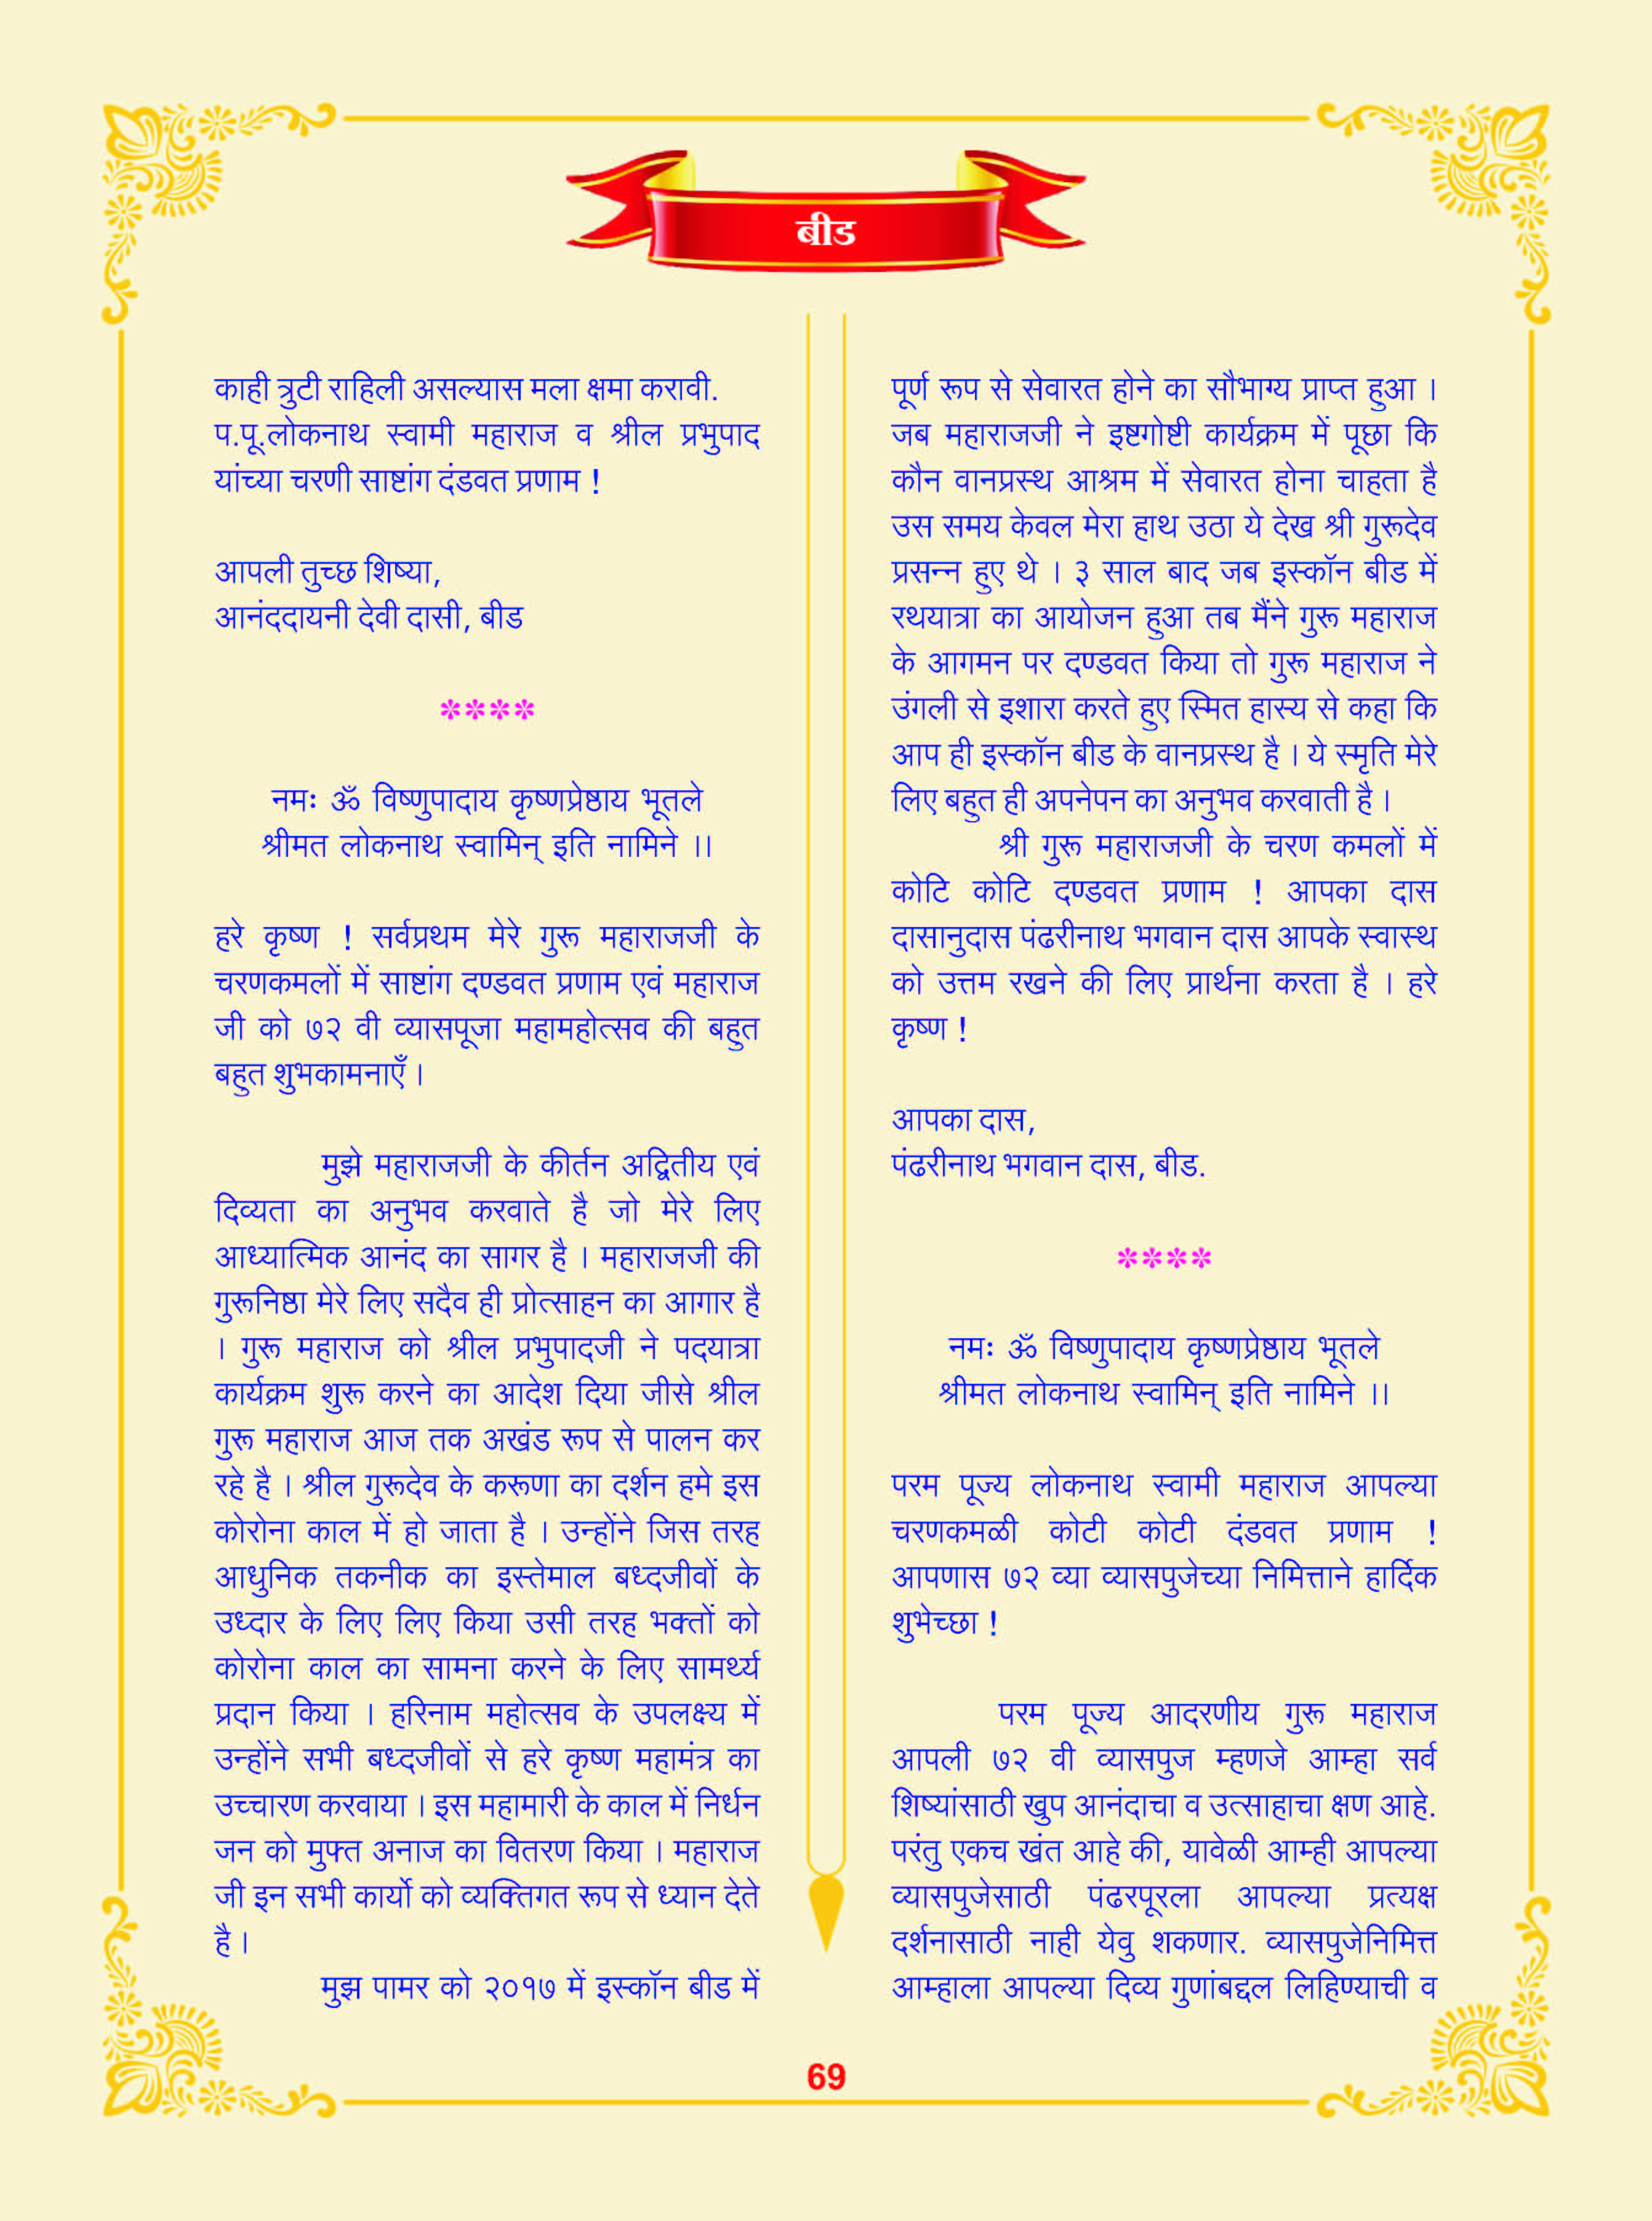 बीड
काही त्रुटी राहिली असल्यास मला क्षमा करावी.
प.पू.लोकनाथ स्वामी महाराज व श्रील प्रभुपाद
यांच्या चरणी साष्टांग दंडवत प्रणाम !
आपली तुच्छ शिष्या,
आनंददायनी देवी दासी, बीड
****
नमः ॐ विष्णुपादाय कृष्णप्रेष्ठाय भूतले
श्रीमत लोकनाथ स्वामिन् इति नामिने ।।
हरे कृष्ण ! सर्वप्रथम मेरे गुरू महाराजजी के
चरणकमलों में साष्टांग दण्डवत प्रणाम एवं महाराज
जी को ७२ वी व्यासपूजा महामहोत्सव की बहुत
बहुत शुभकामनाएँ ।
मुझे महाराजजी के कीर्तन अद्वितीय एवं
दिव्यता का अनुभव करवाते है जो मेरे लिए
आध्यात्मिक आनंद का सागर है । महाराजजी की
गुरूनिष्ठा मेरे लिए सदैव ही प्रोत्साहन का आगार है
। गुरू महाराज को श्रील प्रभुपादजी ने पदयात्रा
कार्यक्रम शुरू करने का आदेश दिया जीसे श्रील
गुरू महाराज आज तक अखंड रूप से पालन कर
रहे है । श्रील गुरूदेव के करूणा का दर्शन हमे इस
कोरोना काल में हो जाता है । उन्होंने जिस तरह
आधुनिक तकनीक का इस्तेमाल बध्दजीवों के
उध्दार के लिए लिए किया उसी तरह भक्तों को
कोरोना काल का सामना करने के लिए सामर्थ्य
प्रदान किया । हरिनाम महोत्सव के उपलक्ष्य में
उन्होंने सभी बध्दजीवों से हरे कृष्ण महामंत्र का
उच्चारण करवाया । इस महामारी के काल में निर्धन
जन को मुफ्त अनाज का वितरण किया । महाराज
जी इन सभी कार्यो को व्यक्तिगत रूप से ध्यान देते
है ।
मुझ पामर को २०१७ में इस्कॉन बीड में
पूर्ण रूप से सेवारत होने का सौभाग्य प्राप्त हुआ ।
जब महाराजजी ने इष्टगोष्टी कार्यक्रम में पूछा कि
कौन वानप्रस्थ आश्रम में सेवारत होना चाहता है
उस समय केवल मेरा हाथ उठा ये देख श्री गुरूदेव
प्रसन्न हुए थे । ३ साल बाद जब इस्कॉन बीड में
रथयात्रा का आयोजन हुआ तब मैंने गुरू महाराज
के आगमन पर दण्डवत किया तो गुरू महाराज ने
उंगली से इशारा करते हुए स्मित हास्य से कहा कि
आप ही इस्कॉन बीड के वानप्रस्थ है । ये स्मृति मेरे
लिए बहुत ही अपनेपन का अनुभव करवाती है ।
श्री गुरू महाराजजी के चरण कमलों में
कोटि कोटि दण्डवत प्रणाम ! आपका दास
दासानुदास पंढरीनाथ भगवान दास आपके स्वास्थ
को उत्तम रखने की लिए प्रार्थना करता है । हरे
कृष्ण !
आपका दास,
पंढरीनाथ भगवान दास, बीड.
****
नमः ॐ विष्णुपादाय कृष्णप्रेष्ठाय भूतले
श्रीमत लोकनाथ स्वामिन् इति नामिने ।।
परम पूज्य लोकनाथ स्वामी महाराज आपल्या
चरणकमळी कोटी कोटी दंडवत प्रणाम !
आपणास ७२ व्या व्यासपुजेच्या निमित्ताने हार्दिक
शुभेच्छा !
परम पूज्य आदरणीय गुरू महाराज
आपली ७२ वी व्यासपुज म्हणजे आम्हा सर्व
शिष्यांसाठी खुप आनंदाचा व उत्साहाचा क्षण आहे.
परंतु एकच खंत आहे की, यावेळी आम्ही आपल्या
व्यासपुजेसाठी पंढरपूरला आपल्या प्रत्यक्ष
दर्शनासाठी नाही येवु शकणार. व्यासपुजेनिमित्त
आम्हाला आपल्या दिव्य गुणांबद्दल लिहिण्याची व
69